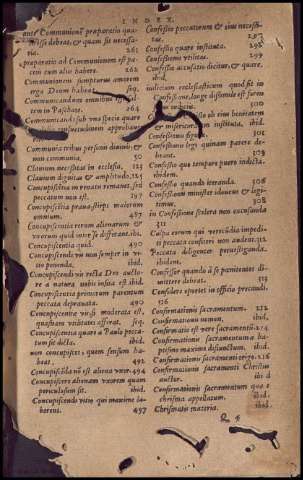 INDEX.
ante Communionē præparatio qua-
lis esse debeat, & quam sit necessa-
ria. 261
præparatio ad Communionem est pa-
cem cum aliis habere. 262
Communionem sumpturus amorem
erga Deum habeat. seq.
Communicandum omnibus
tem in Paschate. 264
Communicandi sub vna specie quare
consuetudinem approbauit
ibid.
Communia tribus personis diuinis, &
non communia, 50
Clauium necessitas in ecclesia. 123
Clauium dignitas & amplitudo. 125
Concupiscentia in renatis remanet, sed
peccatum non est. 197
Concupiscentia praua stirps malorum
omnium. 487
Concupiscentia rerum alienarum &
vxorum quid inter se differant. ibi.
Concupiscentia quid. 490
Concupiscendi vis non semper in vi-
tio ponenda. ibid.
Concupiscendi vis recta Deo aucto-
re a natura nobis insita est. ibid.
Concupiscentia primorum parentum
peccata deprauata. 490
Concupiscentiæ vis, si moderata est,
quasnam vtilitates afferat. seq.
Concupiscentia quare a Paulo pecca-
tum sit dicta. ibid.
non concupisces, quem sensum ha-
beat. 492
Concupiscēda nō est aliena vxor. 494
Concupiscere alienam vxorem quam
periculosum sit. ibid.
Concupiscendi vitio qui maxime la-
borent. 497
Confessio peccatorum & eius necessi-
tas. 297
Confessio quare instituta. 298
Confessionis vtilitas. 299
Confessio accusatio dicitur, & quare.
ibid.
iudicium ecclesiasticum quod fit in
Confessione, longe distat a fore-
n iudicio. 300
Confessio ab eius benignitate
& misericordia instituta, ibid.
Confessionis figura. 302
Confessionis lege quinam patere de-
beant. 303
Confessio quo tempore puero indicta.
ibidem.
Confessio quando iteranda. 308
Confessionis minister idoneus & legi-
timus. 308
in Confessione scelera non excusanda
311
Culpa eorum qui verecūdia impedi-
ti peccata confiteri non audent. 312
Peccata diligenter peruestiganda.
ibidem.
Confessor quando a se pœnitentes di-
mittere debeat. 313
Considere oportet in officio præcundi.
526
Confirmationis sacramentum. 212
Confirmationis nomen. ibid.
Confirmatio est vere sacramentū. 214
Confirmationis sacramentum a ba-
ptismo maxime distinctum. ibid.
Confirmationis sacramenti origo. 216
Confirmationis sacramenti Christus
auctor. ibid.
Confirmationis sacramentum quare
chrisma appellatum. ibid.
Chrismatis materia. ibid.